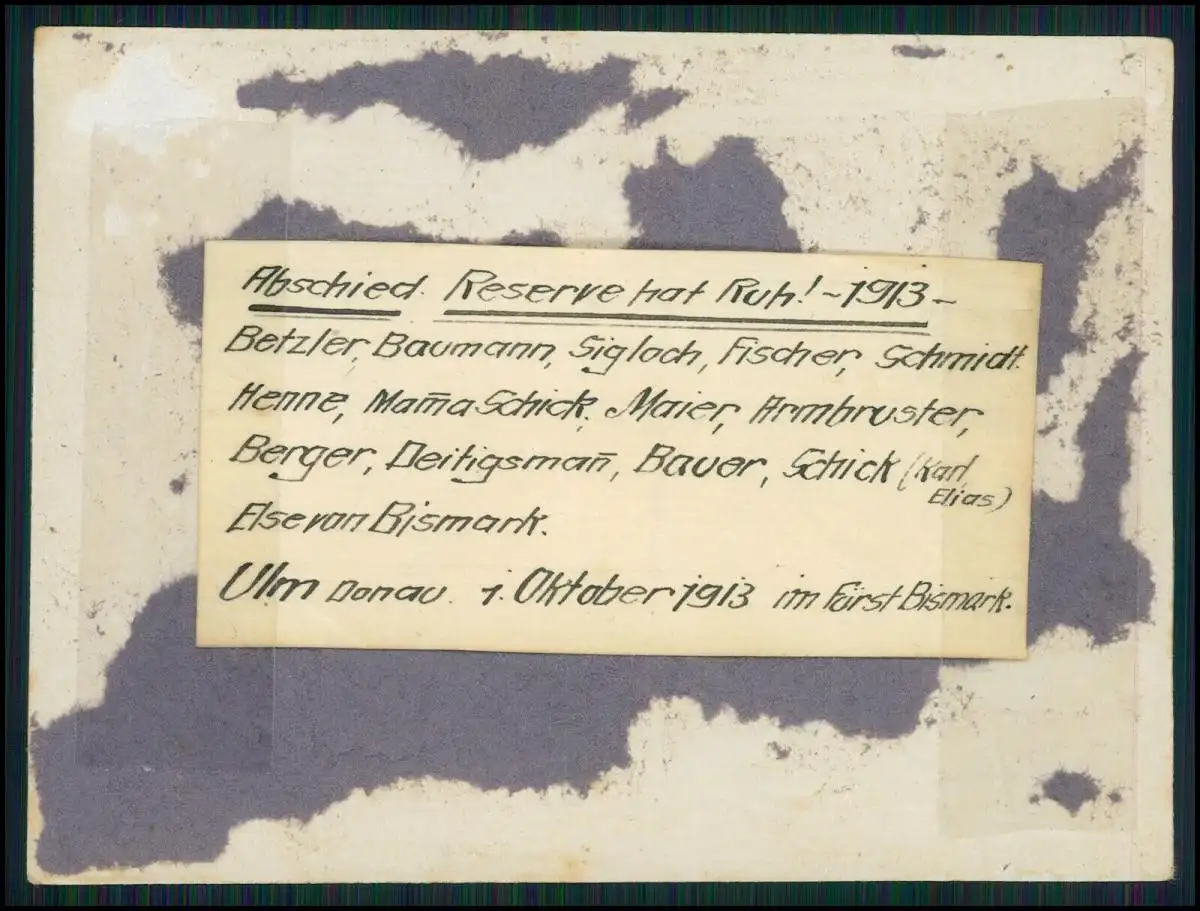 Abschied. Reserve hat Ruh! - 1913 -
Betzler, Baumann, Sigloch, Fischer, Schmidt.
Henne, Mam̄a Schick, Maier, Armbruster,
Berger, Deitigsman̄, Bauer, Schick (Karl,
Elias)
Else von Bismark.
Ulm Donau. 1. Oktober 1913 im Fürst Bismark.